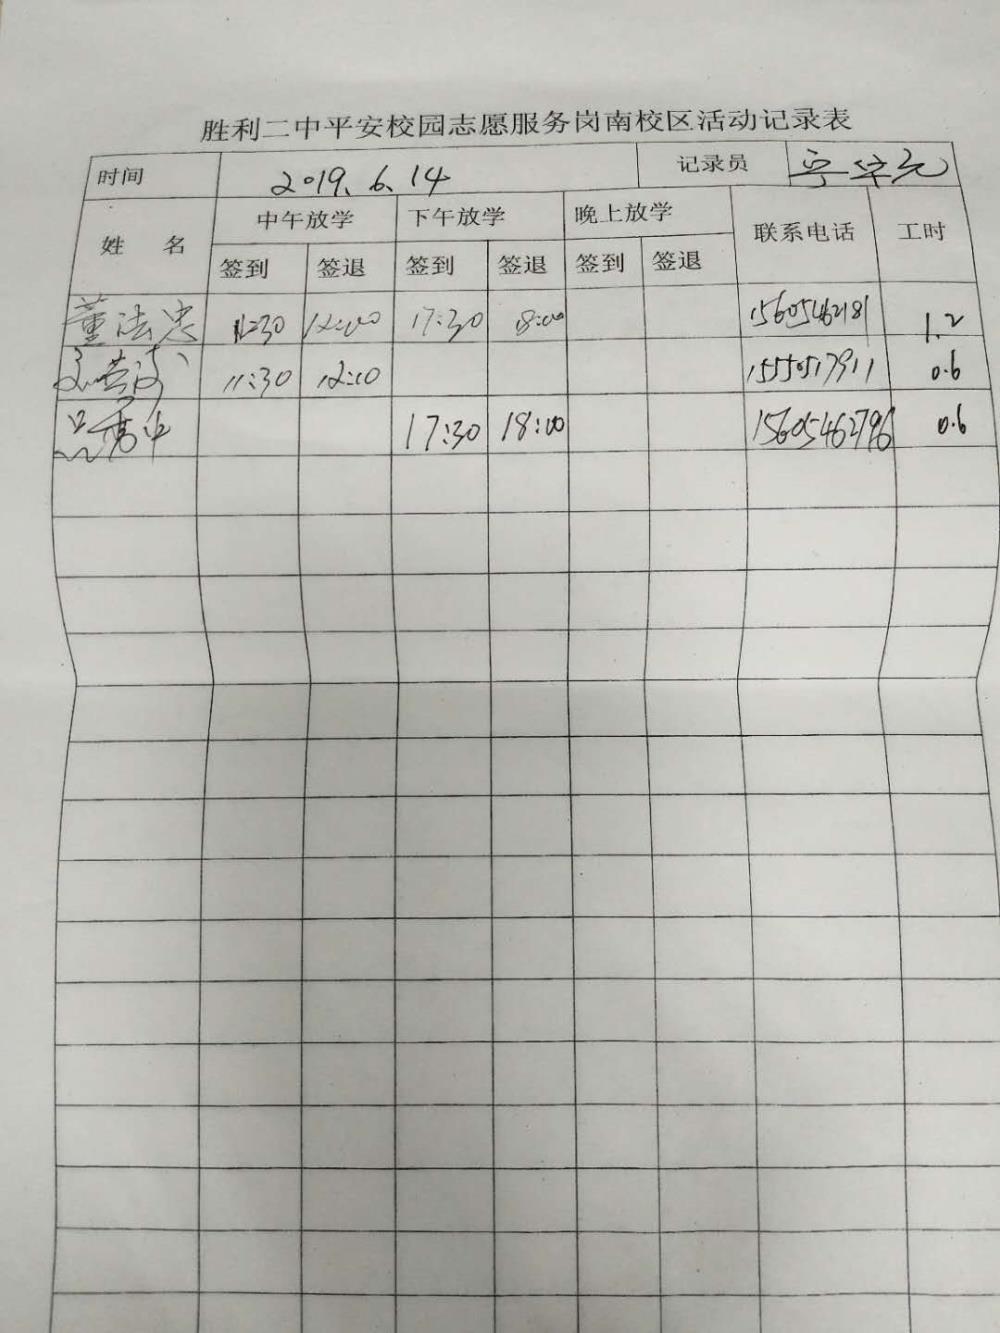 胜利二中平安校园志愿服务岗南校区活动记录表
时间 2019.6.14 记录员
姓 名 中午放学 下午放学 晚上放学 联系电话 工时
签到 签退 签到 签退 签到 签退
董法忠 11:30 12:00 17:30 8:00 15605462181 1.2
11:30 12:10 15550517911 0.6
17:30 18:00 15605462796 0.6